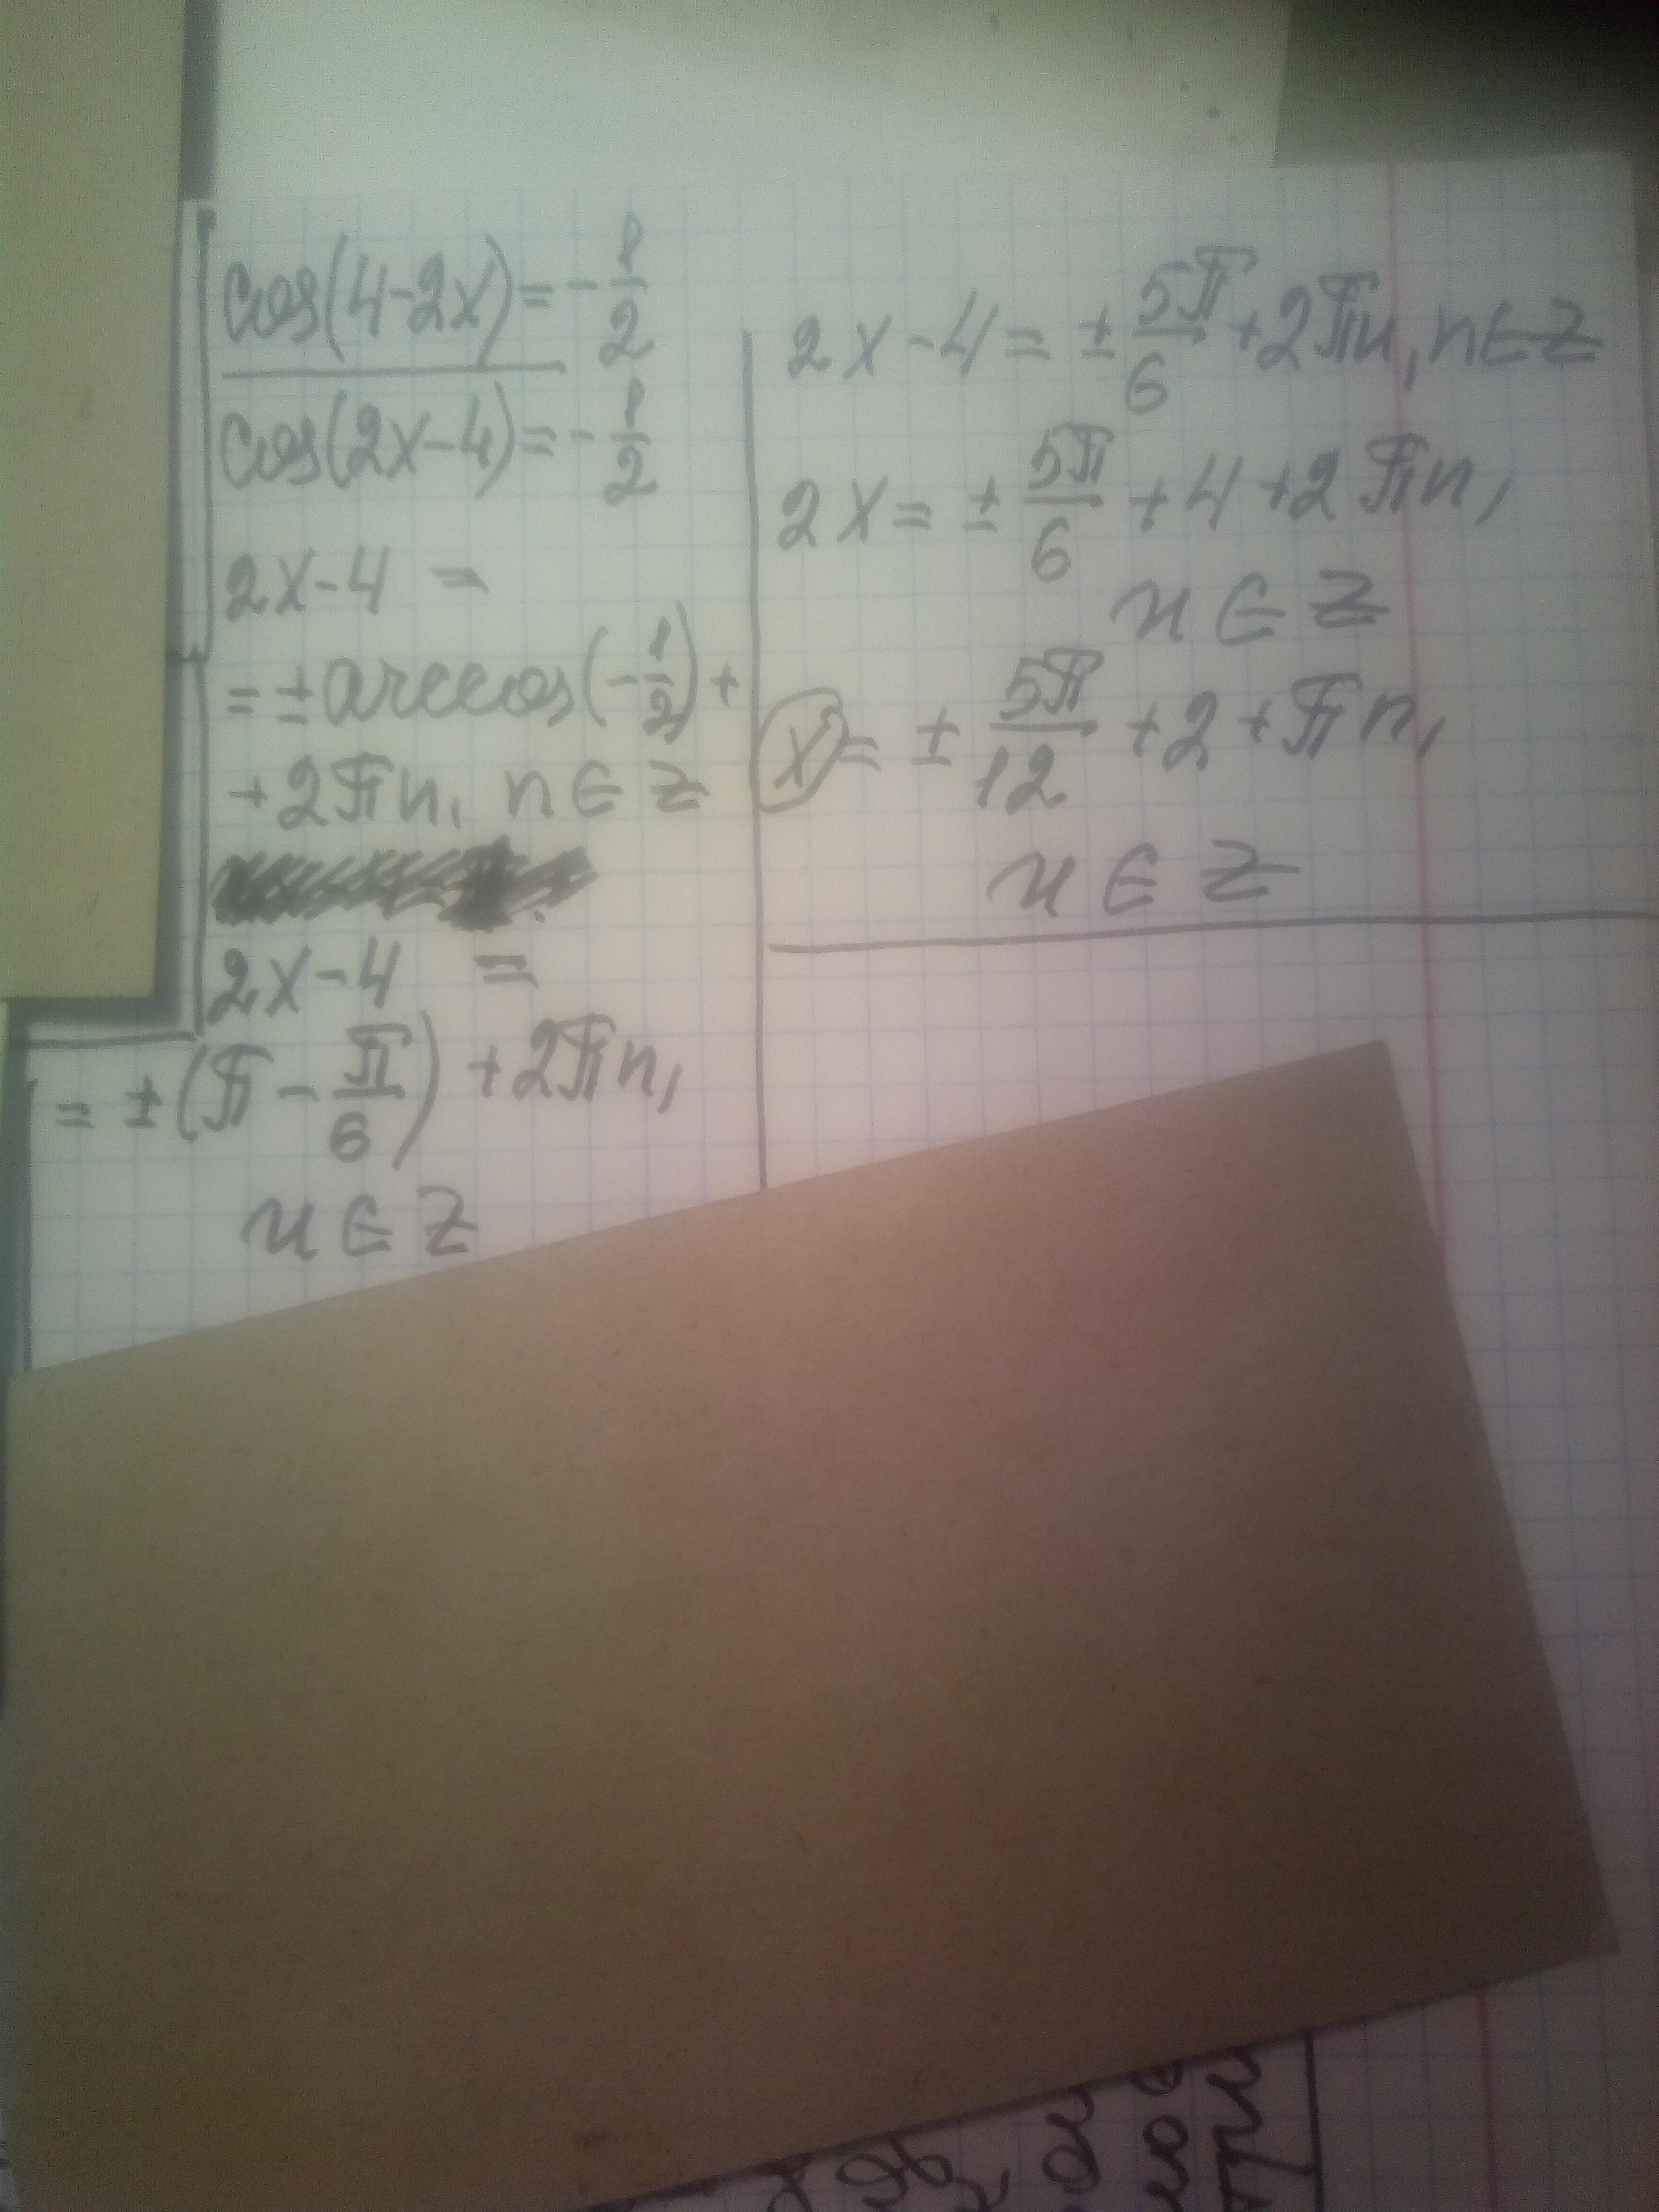 cos(4-2x)=-1/2
cos(2x-4)=-1/2
2x-4 =
=±arccos(-1/2)+
+2πn, n∈Z
2x-4 =
=±(π-π/6)+2πn,
n∈Z
2x-4=±5π/6+2πn, n∈Z
2x=±5π/6+4+2πn,
n∈Z
x=±5π/12+2+πn,
n∈Z